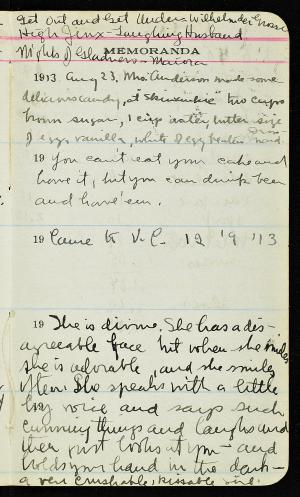 Get Out and Get Under Wilhelm der Grosse
High Jinx - Laughing Husband
Nights of Gladness -
MEMORANDA
1913. Aug 23, Mrs. Anderson made some
delicious candy, at two cups
brown sugar, 1 cup water, butter size
of egg, vanilla, white of egg beaten
19 You can't eat your cake and
have it, but you can drink beer
and have 'em.
19 Came to V.C. 12 '9 '13
19 She is divine. She has a dis-
agreeable face but when she smiles
she is adorable, and she smiles
often. She speaks with a little
boy voice and says such
cunning things and laughs and
then just looks at you - and
holds your hand in the dark -
a very crushable, kissable